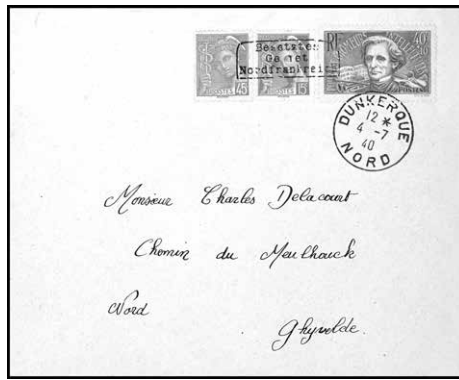 Besetztes
Gebiet
Nordfrankreich
RF 40c
POSTES 45
DUNKERQUE
12 *
4 -7
40
NORD
Monsieur Charles Delacourt
Chemin du Meulhouck
Nord
Ghyvelde.